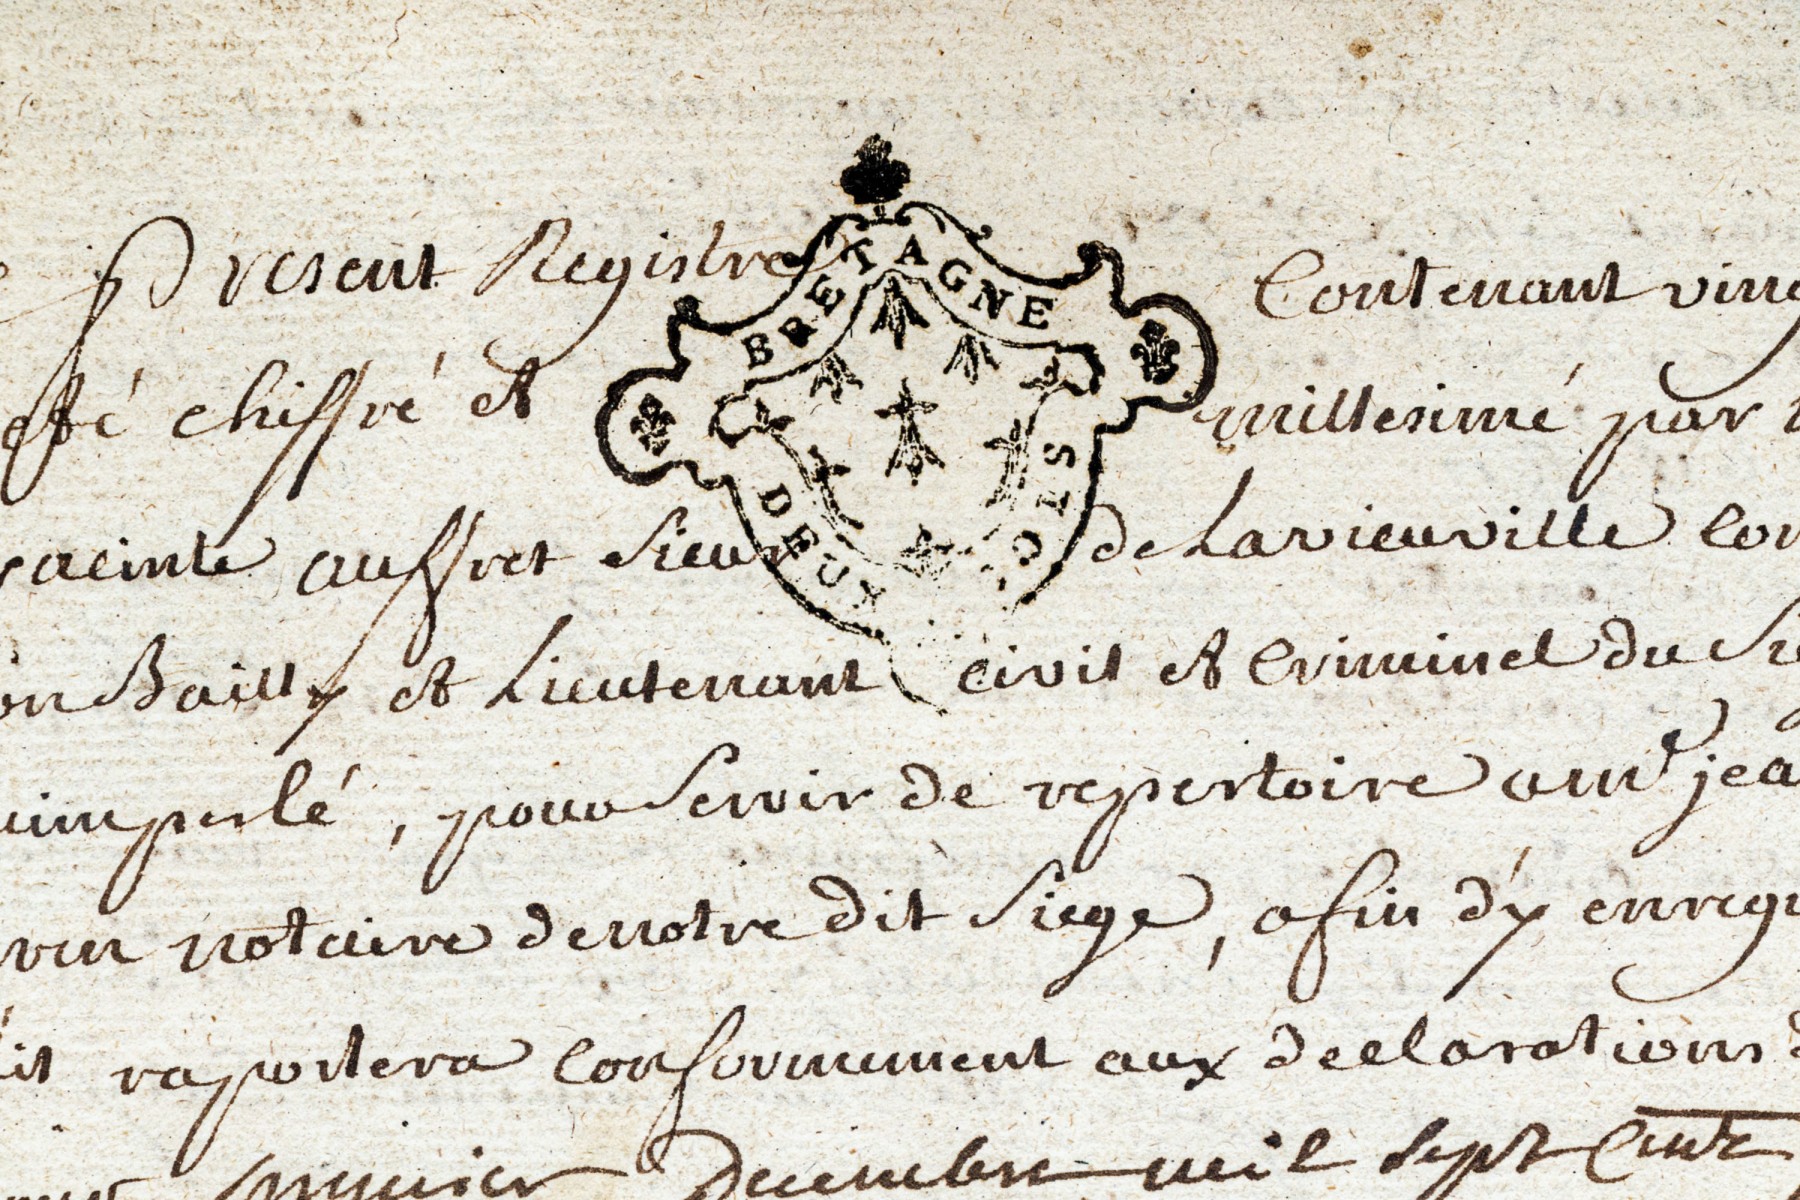 present Registre Contenant ving
chiffré et millesimé par
auffret sieur de Lavieuville Con
Bailly et Lieutenant civil et Criminel du Si
uimperlé, pour servir de repertoire a mr jea
notaire de notre dit siege, afin d'y enregi
raportera conformement aux declarations d
premier Decembre mil sept Cent
BRETAGNE
DEUX SOLS